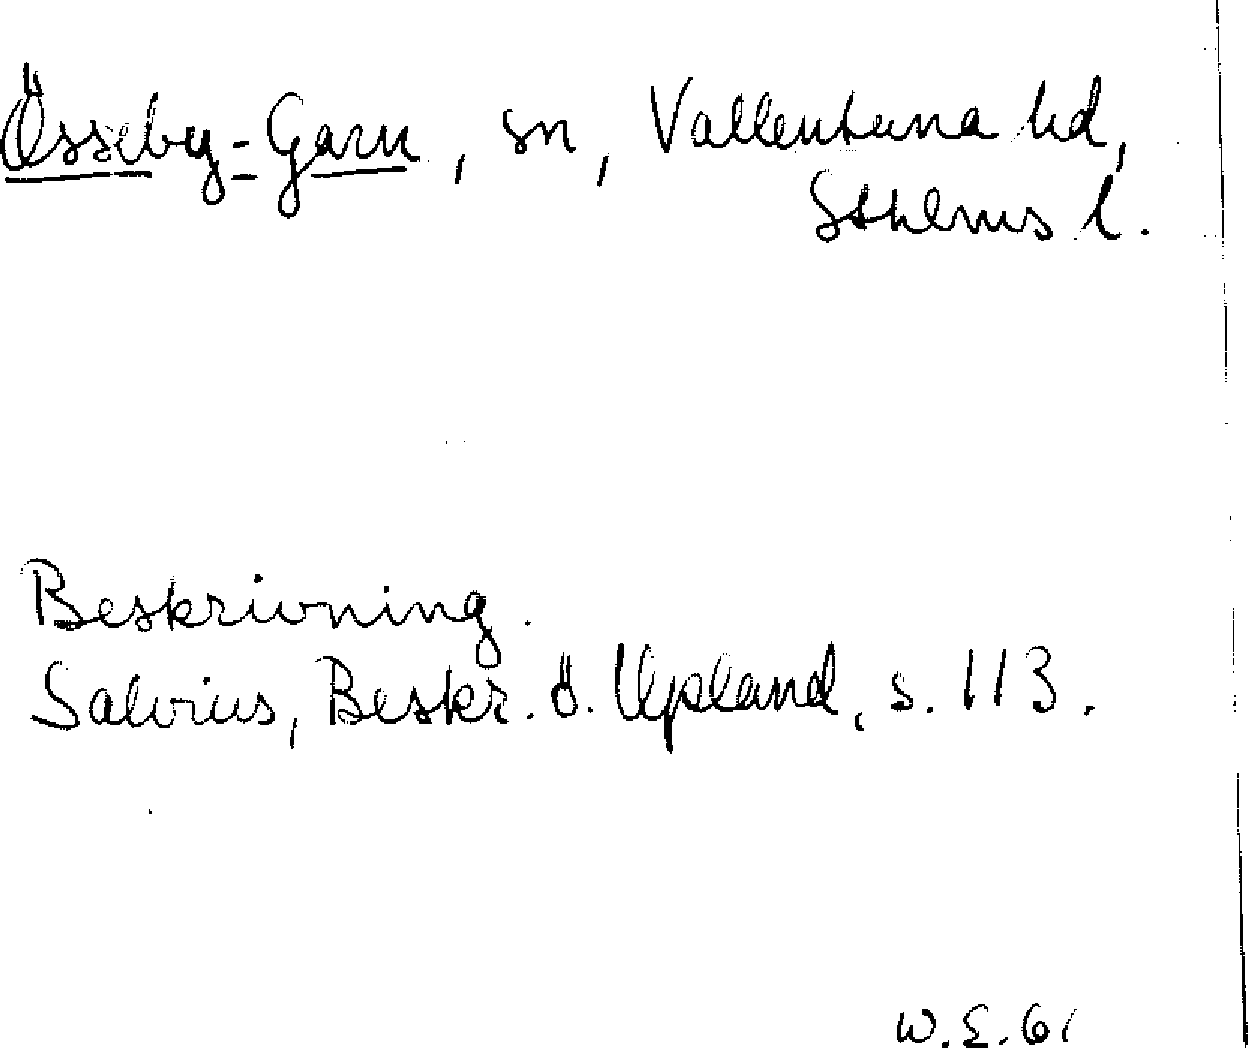 Össeby-Garn, sn, Vallentuna hd,
Sthlms l.
Beskrivning.
Salvius, Beskr. ö. Upland, s. 113.
W.E. 61